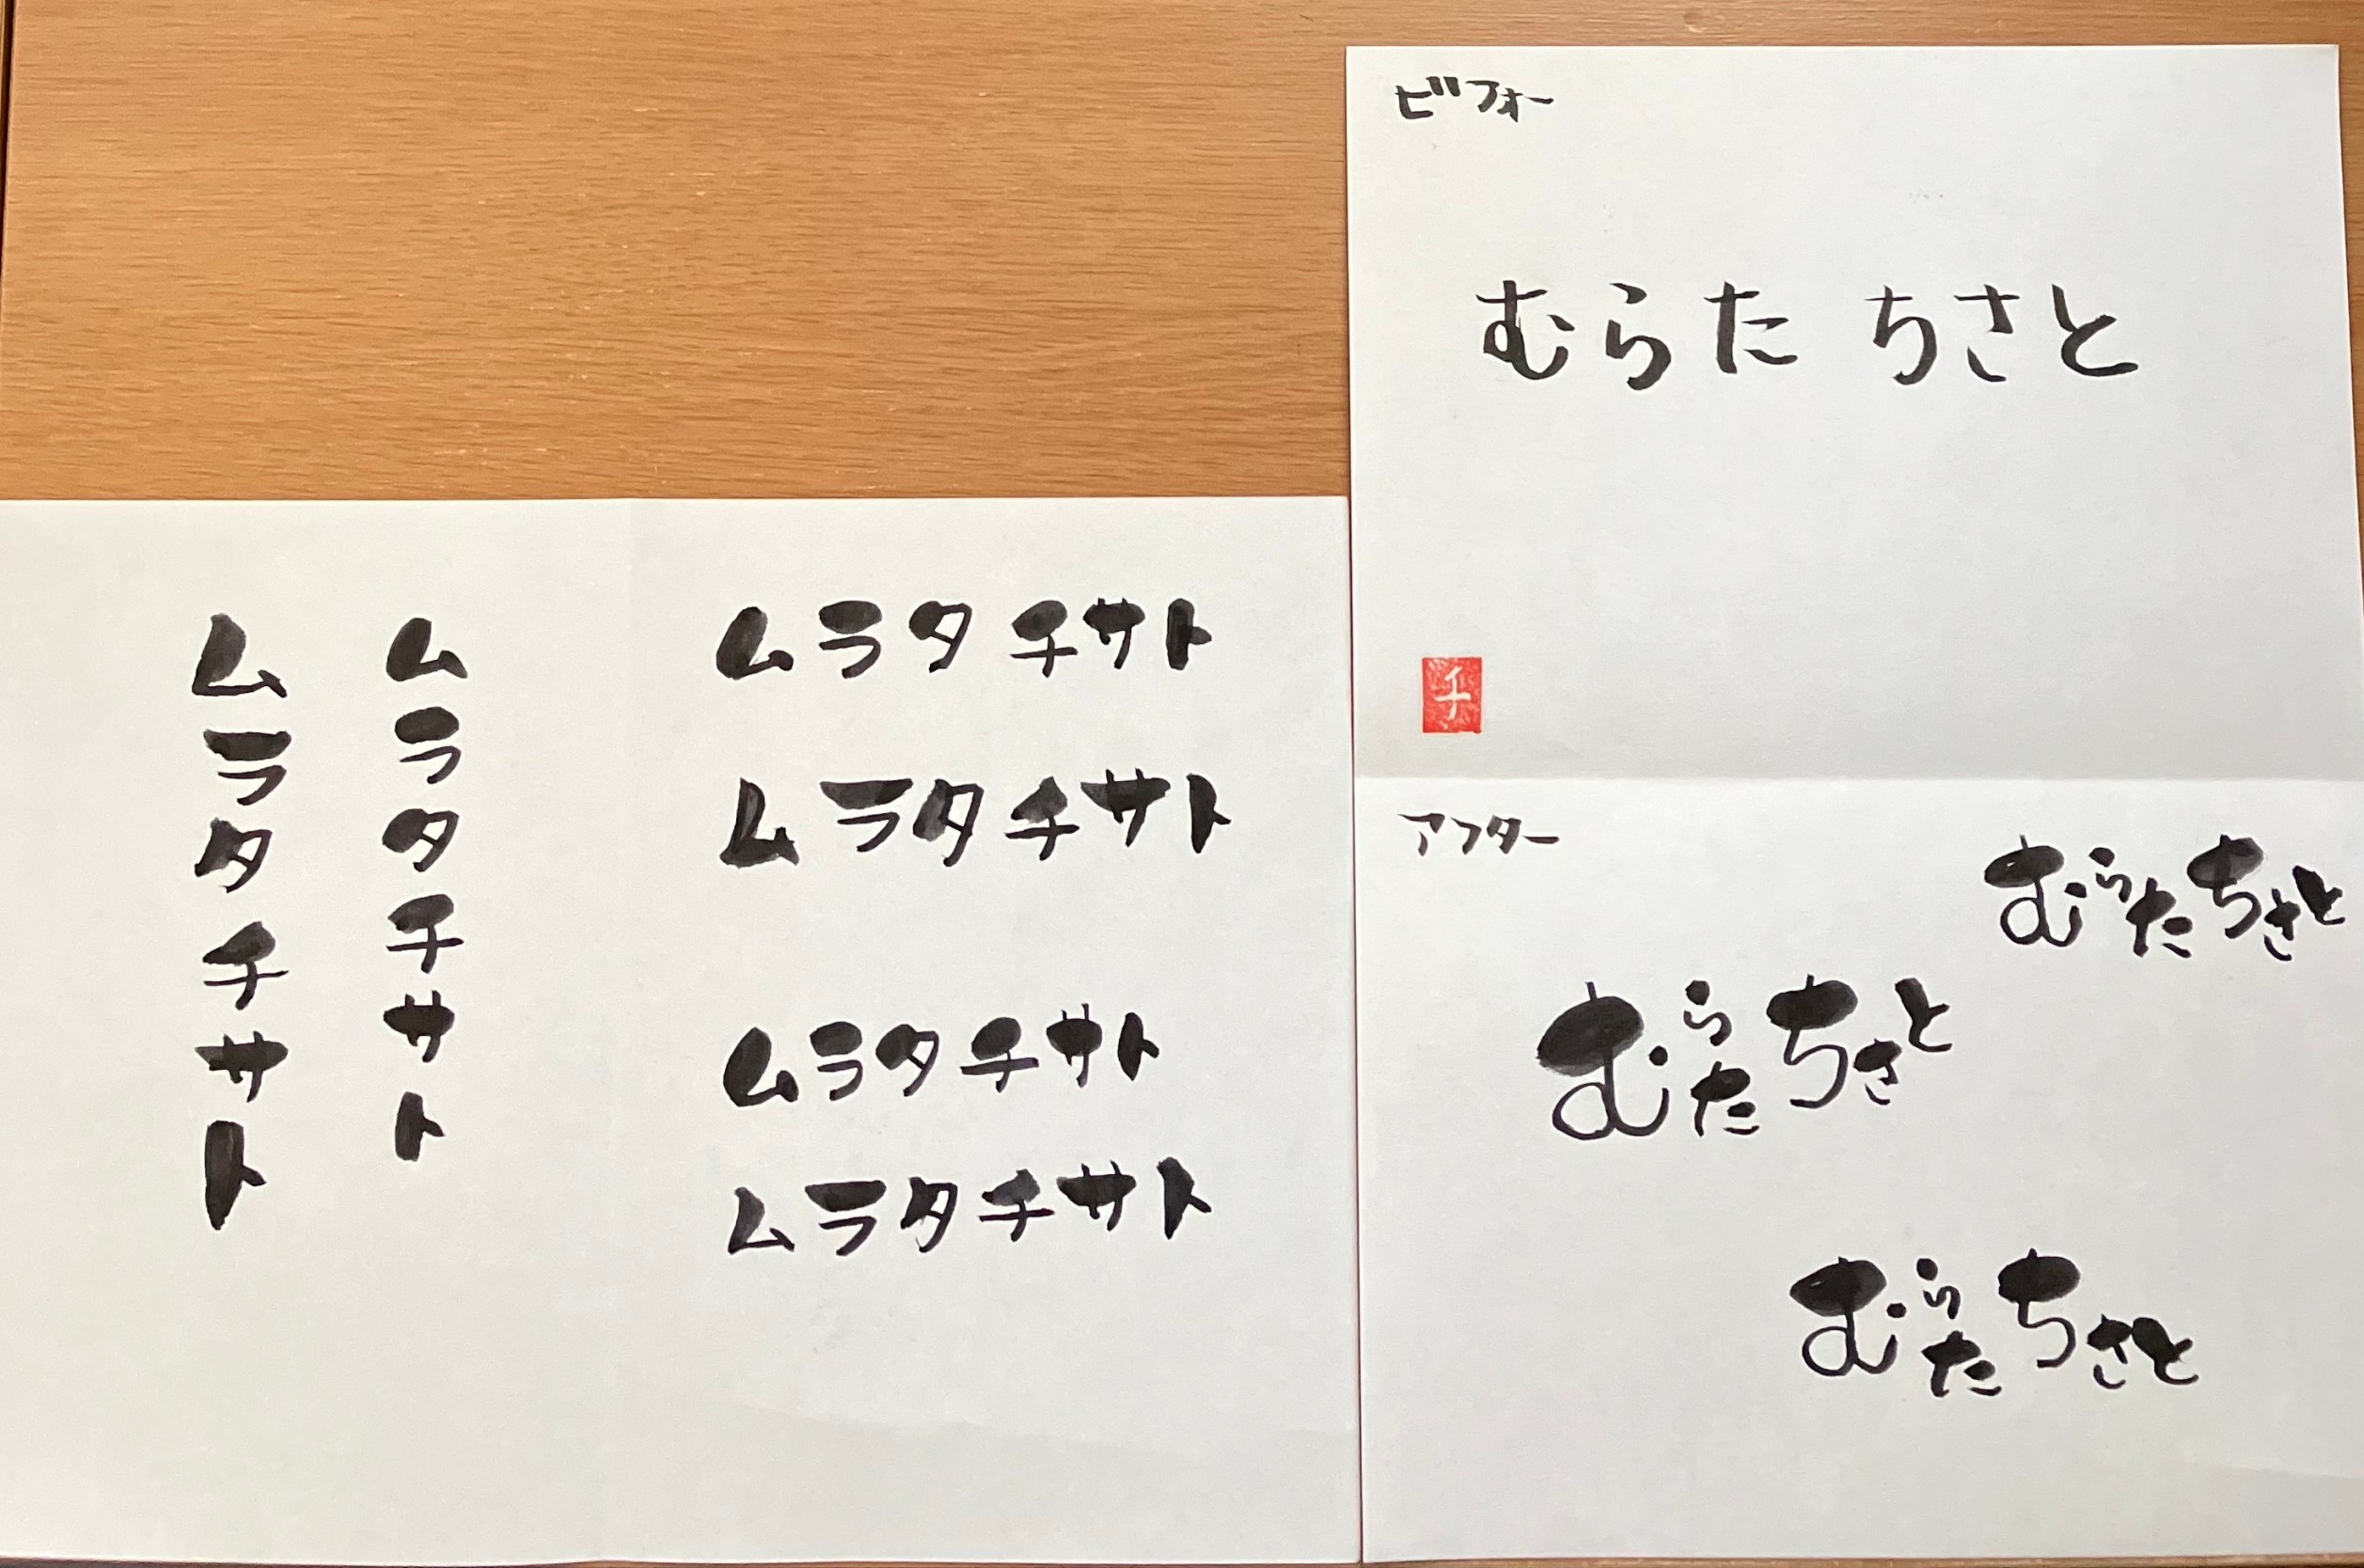 ビフォー
むらた ちさと
チ
アフター
むらたちさと
むらたちさと
むらたちさと
ムラタチサト
ムラタチサト
ムラタチサト
ムラタチサト
ムラタチサト
ムラタチサト